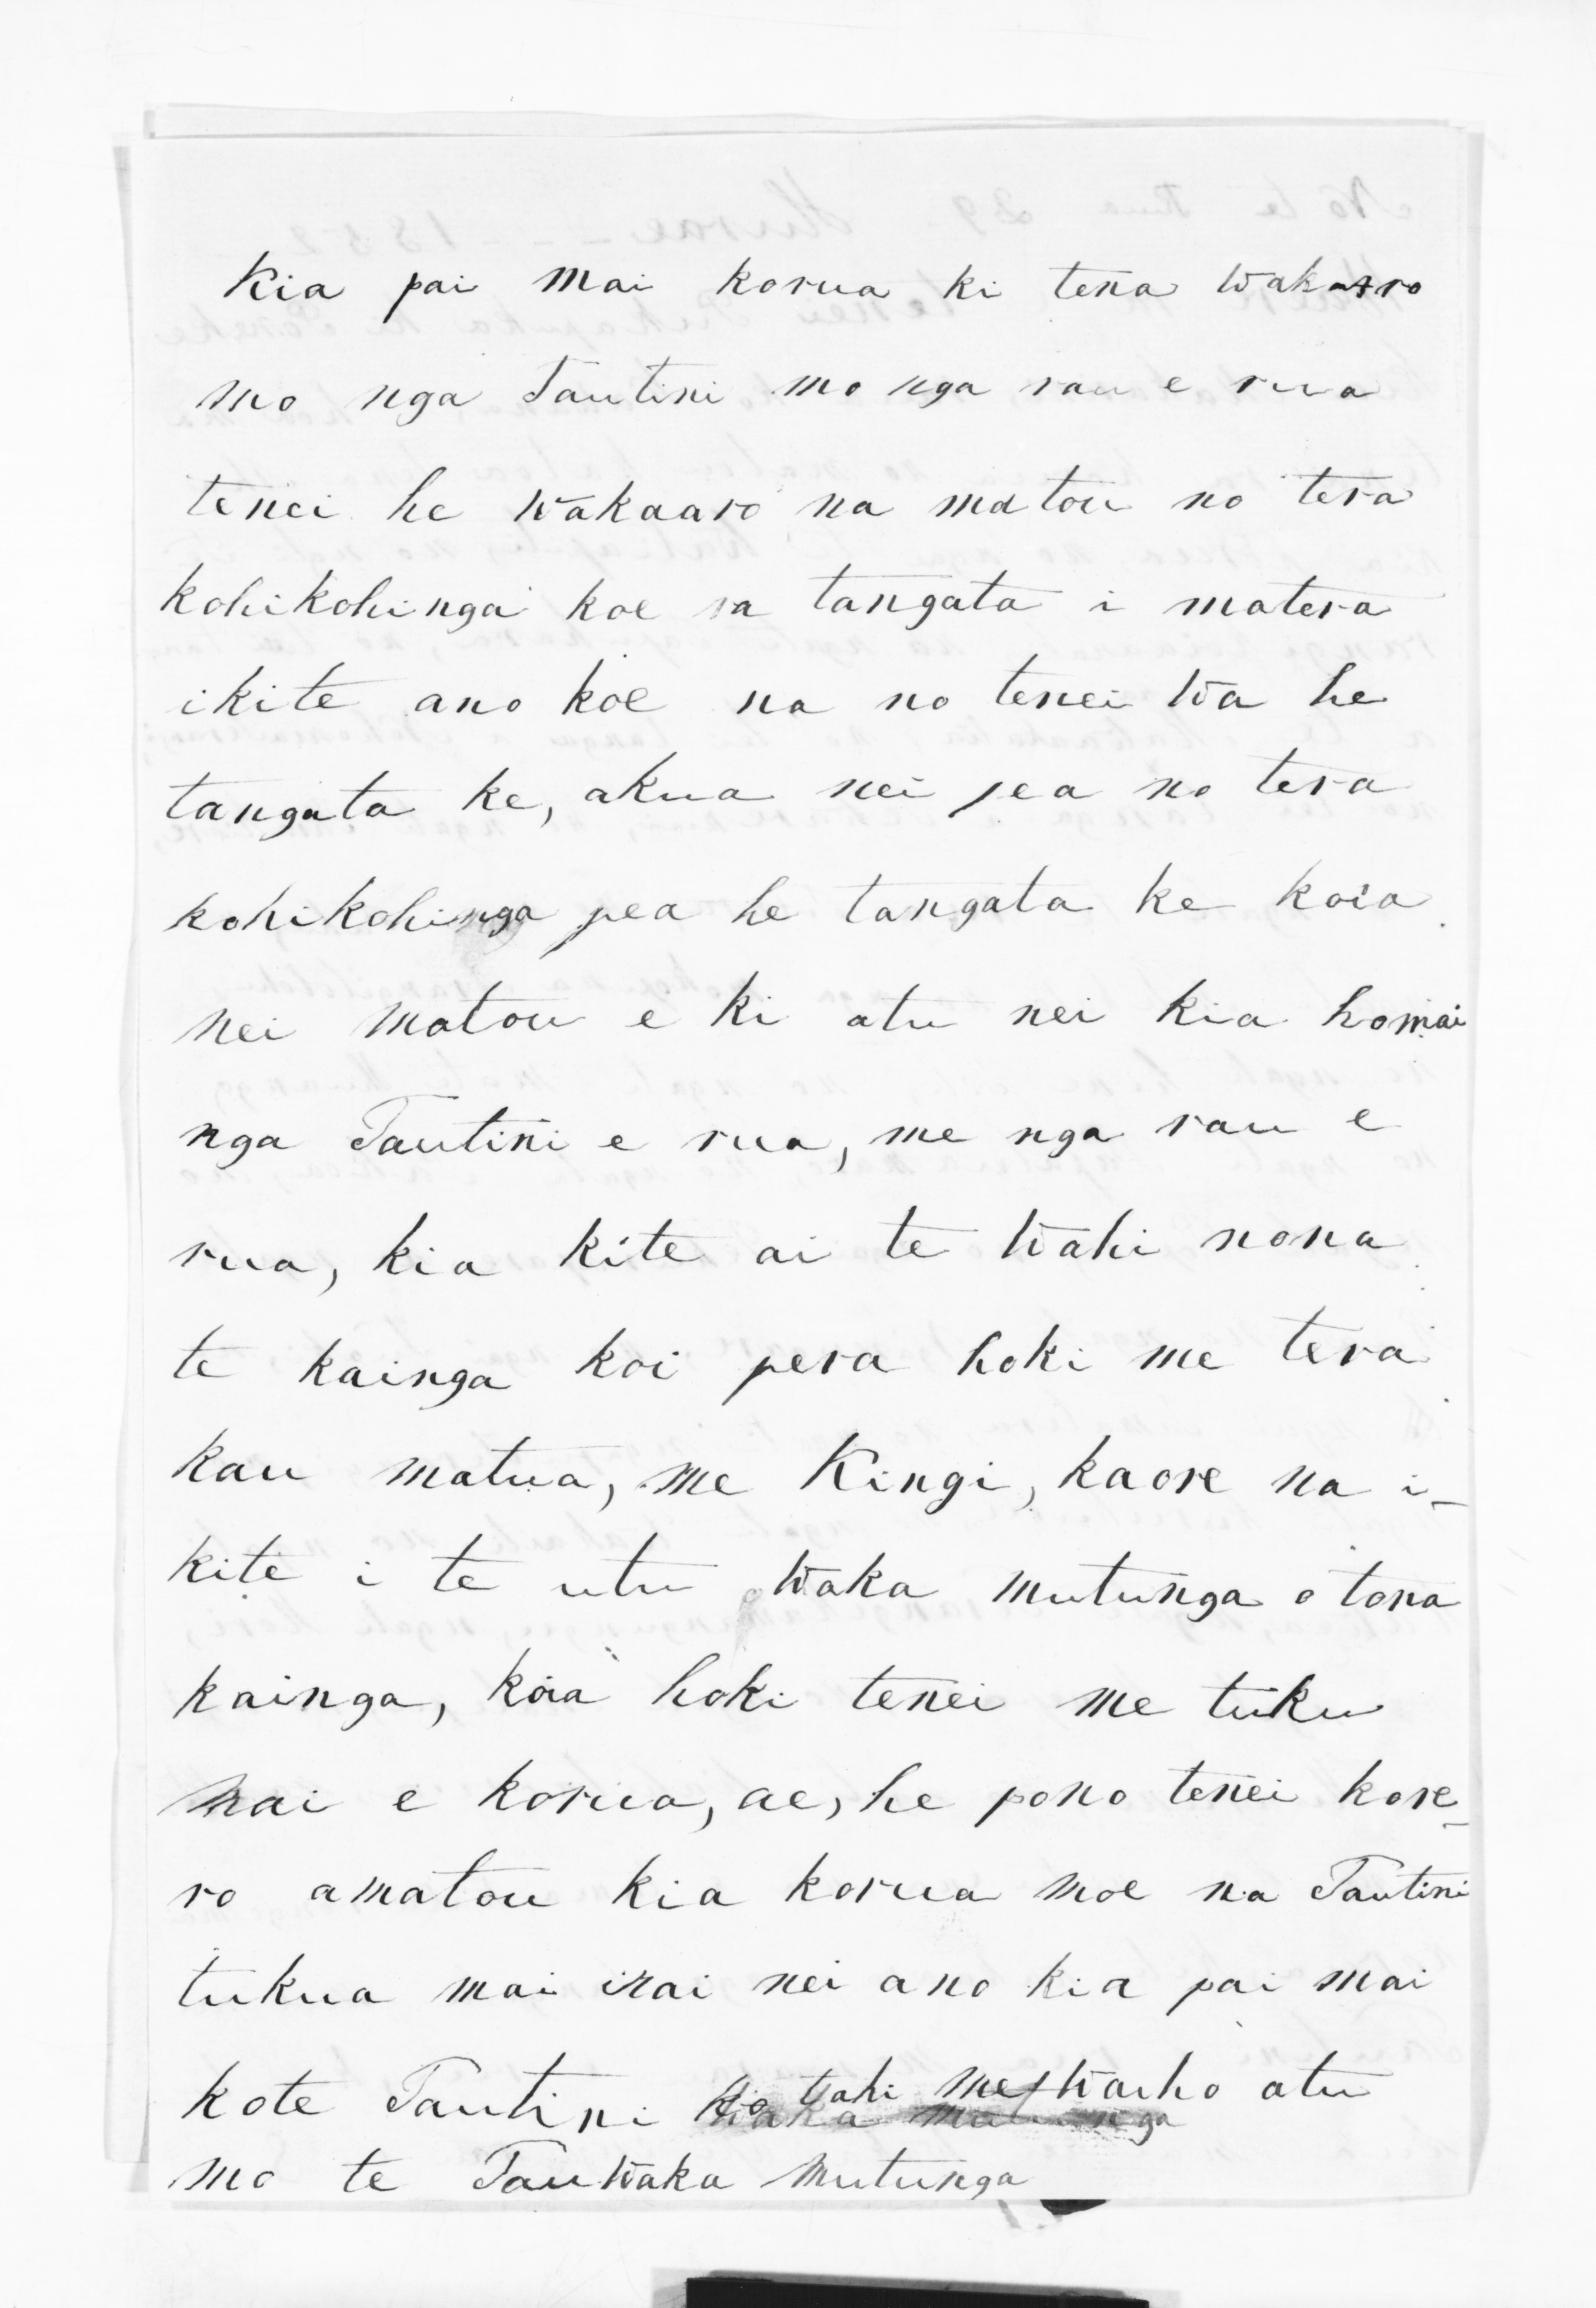 Kia pai mai korua ki tena wakaaro
mo nga Tautini mo nga rau e rua
tenei he wakaaro na matou no tera
kohikohinga koe ra tangata i matera
ikite ano koe na no tenei wa he
tangata ke, akua nei pea no tera
kohikohinga pea he tangata ke koia
nei matou e ki atu nei kia homai
nga Tautini e rua, me nga rau e
rua, kia kite ai te wahi nona
te kainga koi pera hoki me tera
kau matua, me Kingi, kaore na i-
kite i te utu waka mutunga o tona
kainga, koia hoki tenei me tuku
mai e korua, ae, he pono tenei kore-
ro amatou kia korua moe na Tautini
tukua mai irai nei ano kia pai mai
kote Tautini ko tahi me waiho atu
mo te Tau waka mutunga